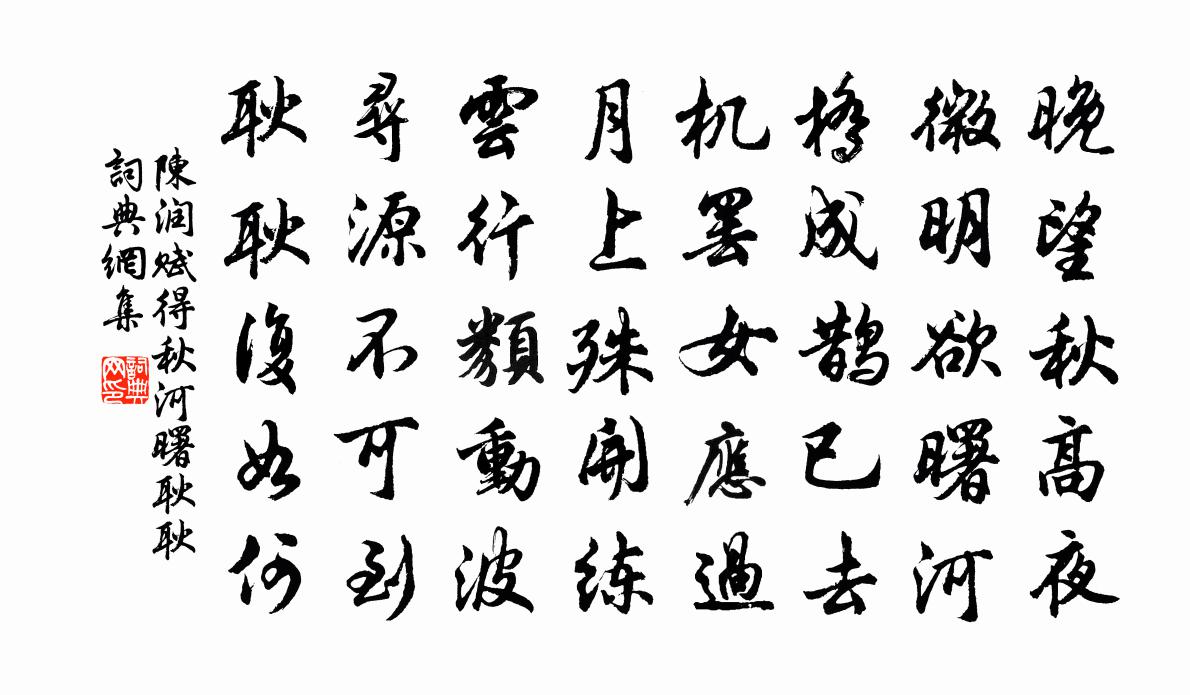 晚望秋高夜
微明欲曙河
橋成鹊已去
机罢女應過
月上殊開练
雲行類動波
尋源不可到
耿耿復如何
陳润赋得秋河曙耿耿
詞典網集
詞典网印